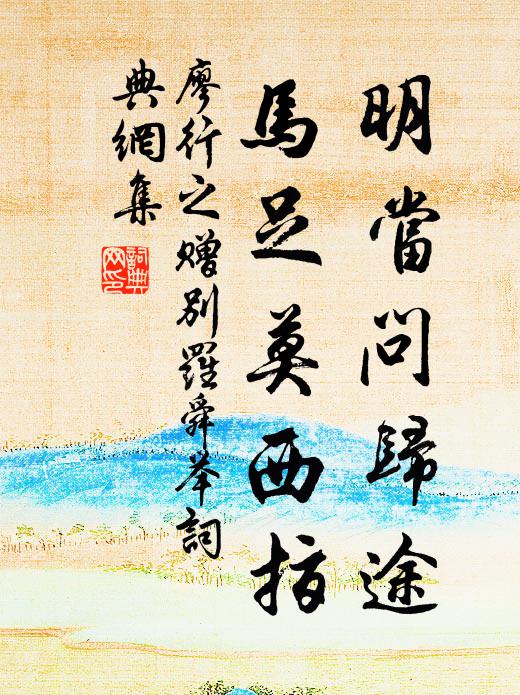 明當問歸途
馬足莫西指
廖行之贈別羅舜举詞
典網集
詞典网印